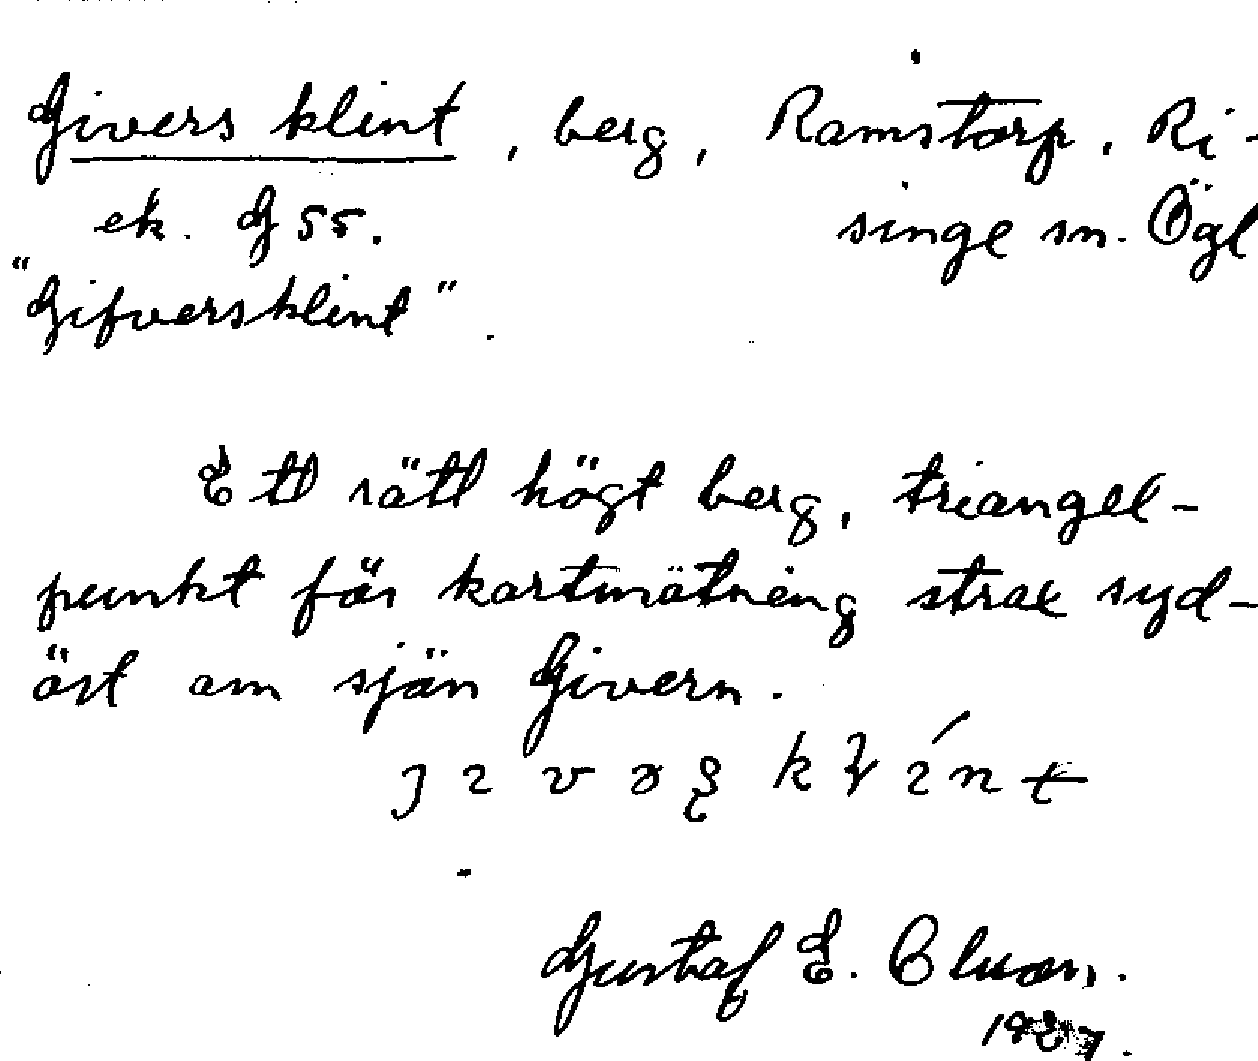 Givers klint, berg, Ramstorp. Ri-
ek. G 55. singe sn. Ögl
"Gifversklint".
Ett rätt högt berg, triangel-
punkt för kartmätning strax syd-
öst om sjön Givern.
Gustaf E. Cluar.
1927.